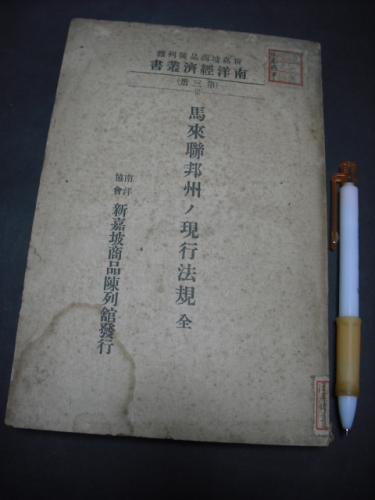 新嘉坡商品陳列館
南洋經濟叢書
(第三册)
馬來聯邦州ノ現行法規 全
南洋協會
新嘉坡商品陳列館發行